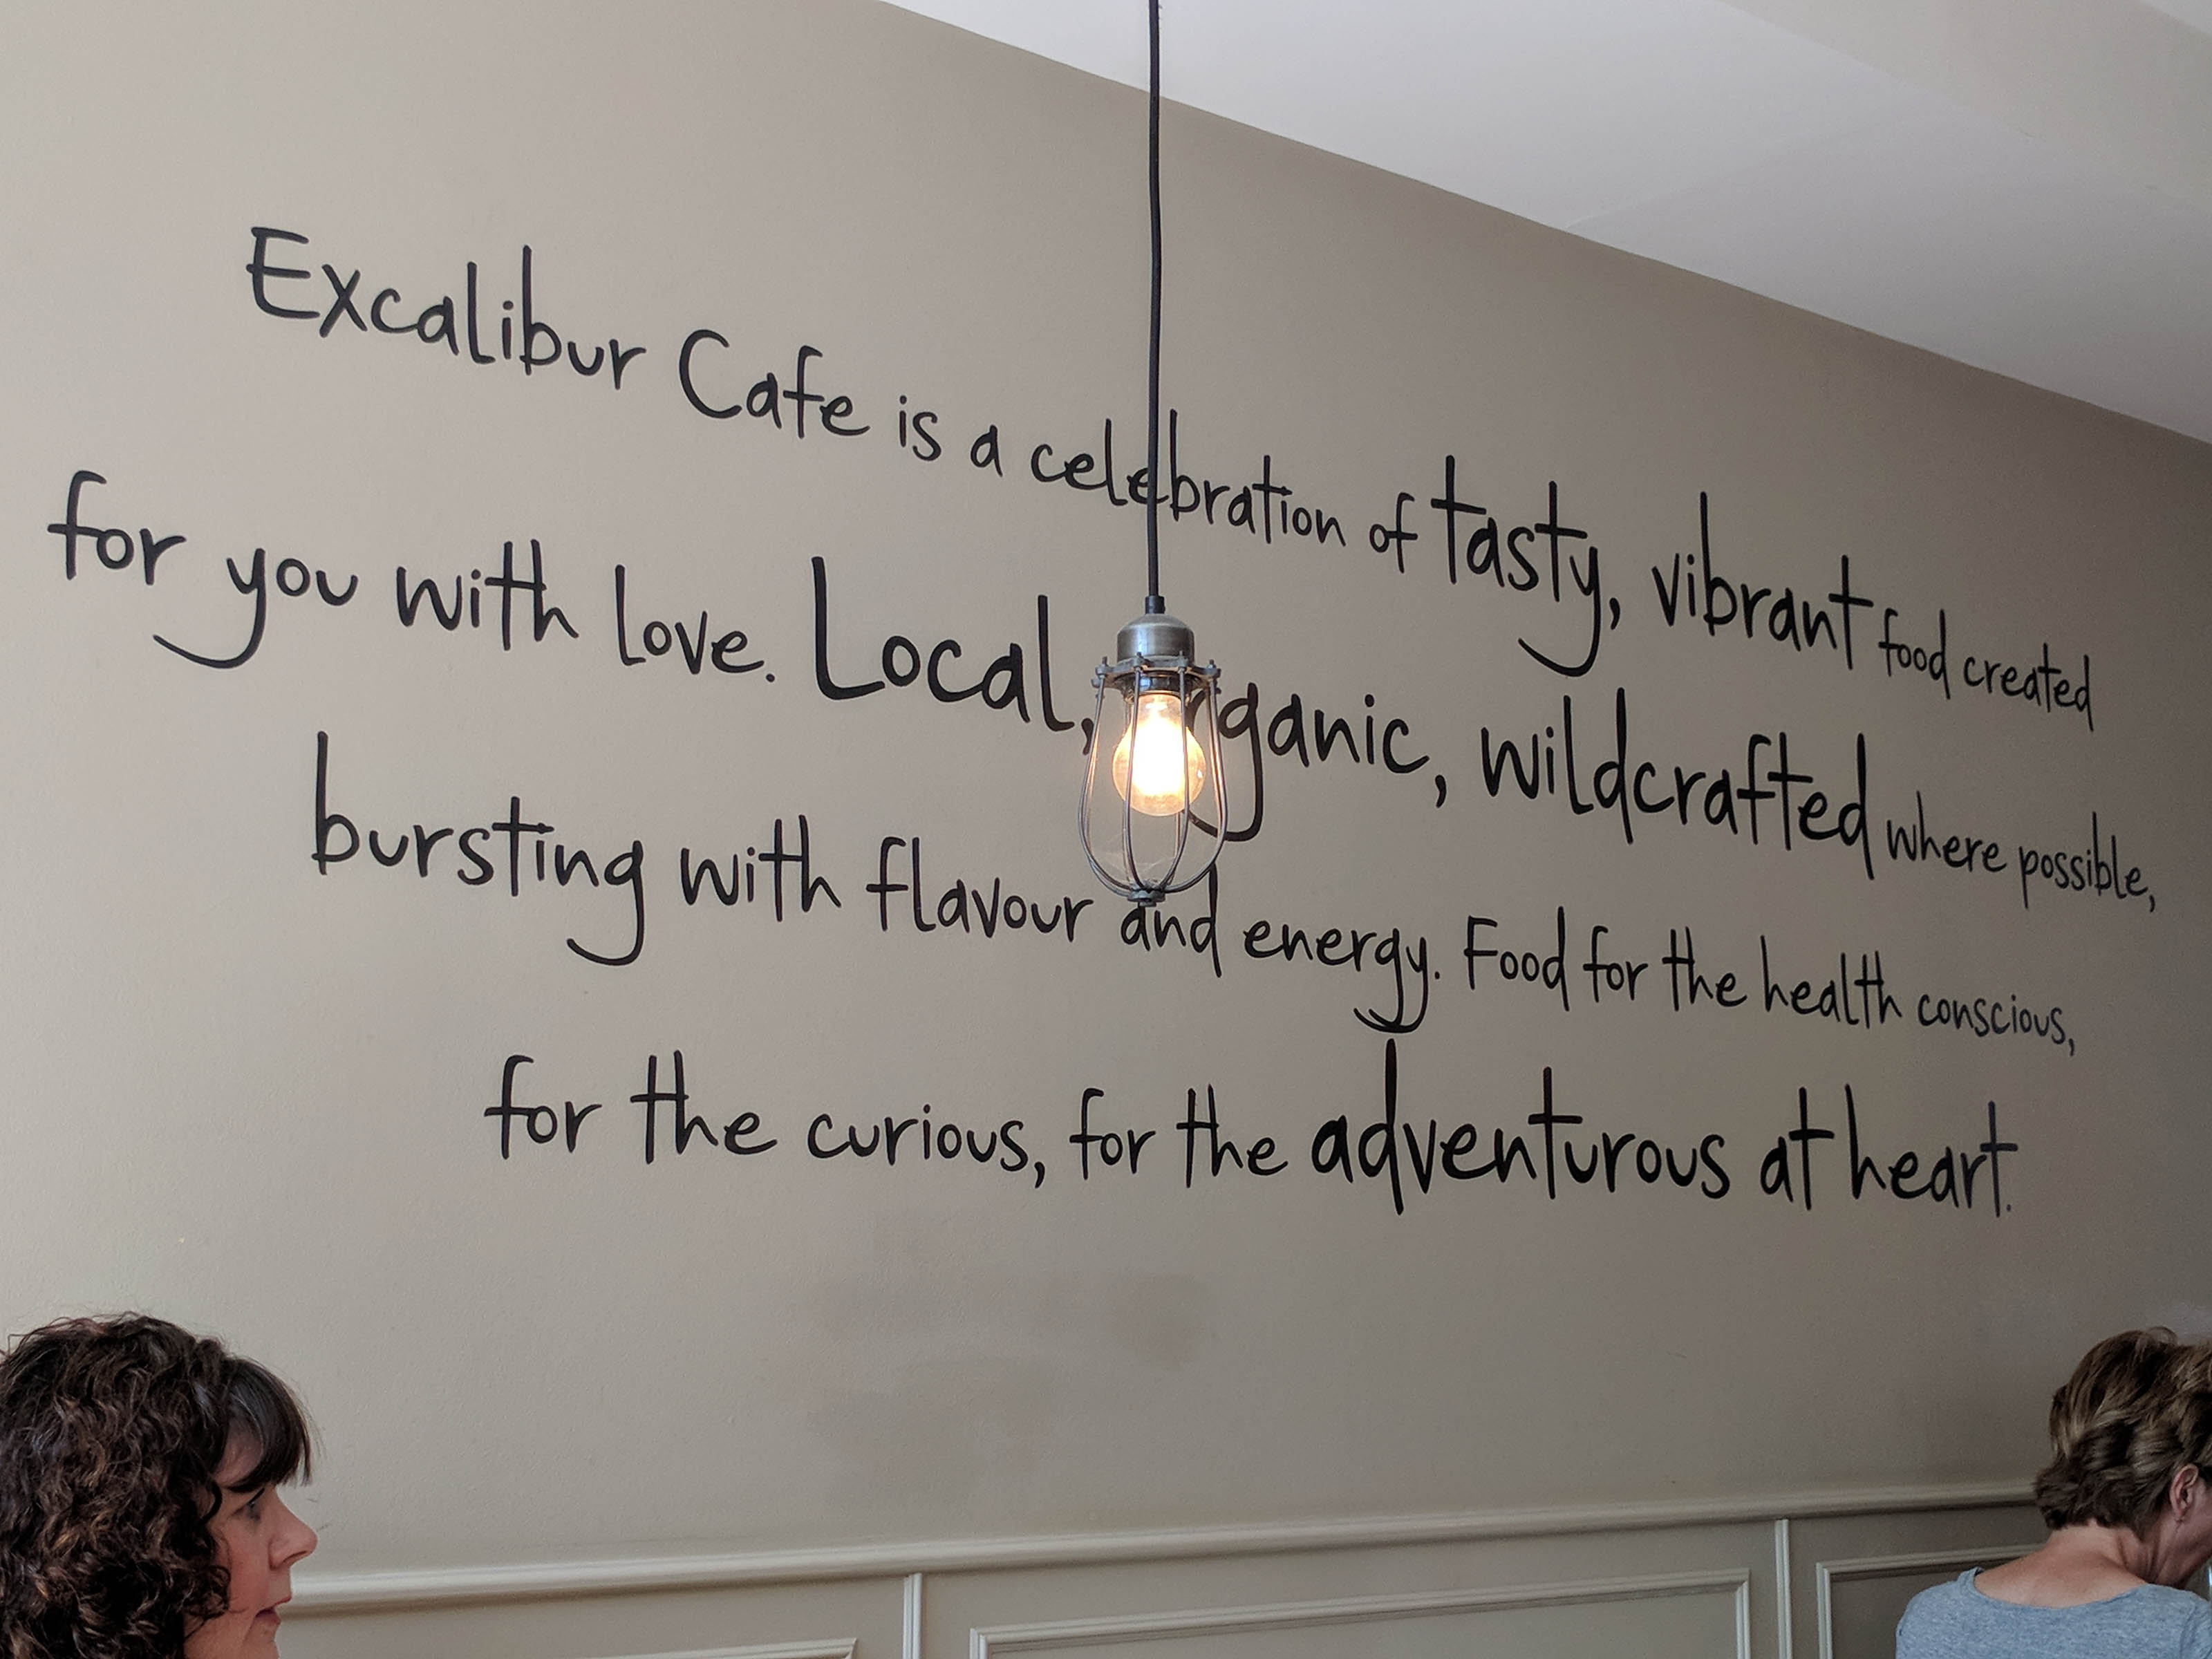 Excalibur Cafe is a celebration of tasty, vibrant food created
for you with love. Local, organic, wildcrafted where possible,
bursting with flavour and energy. Food for the health conscious,
for the curious, for the adventurous at heart.